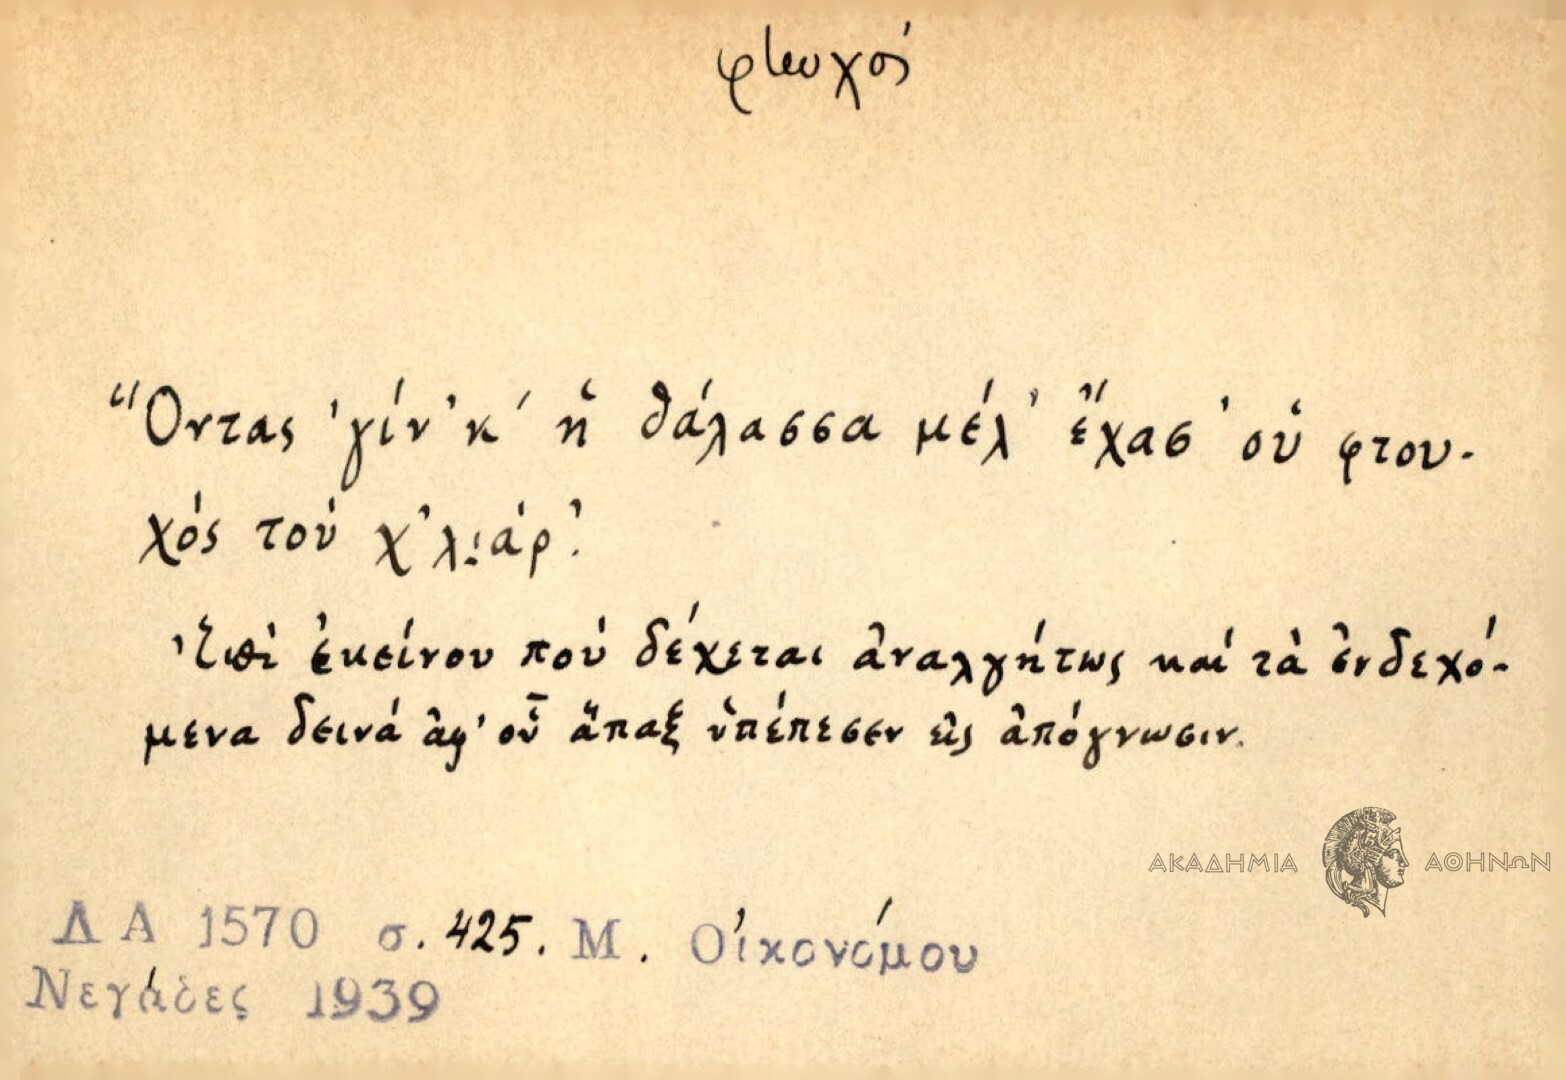 φτωχός
Ὅντας 'γίν'κ' ἡ θάλασσα μέλ' ἔχασ' οὑ φτου-
χός τού χ'λιάρ'.
Ἐπὶ ἐκείνου πού δέχεται ἀναλγήτως καί τὰ ἐνδεχό-
μενα δεινά ἀφ' οὗ ἅπαξ ὑπέπεσεν εἰς ἀπόγνωσιν.
ΑΚΑΔΗΜΙΑ ΑΘΗΝΩΝ
Δ Α 1570 σ. 425. Μ. Οἰκονόμου
Νεγάδες 1939